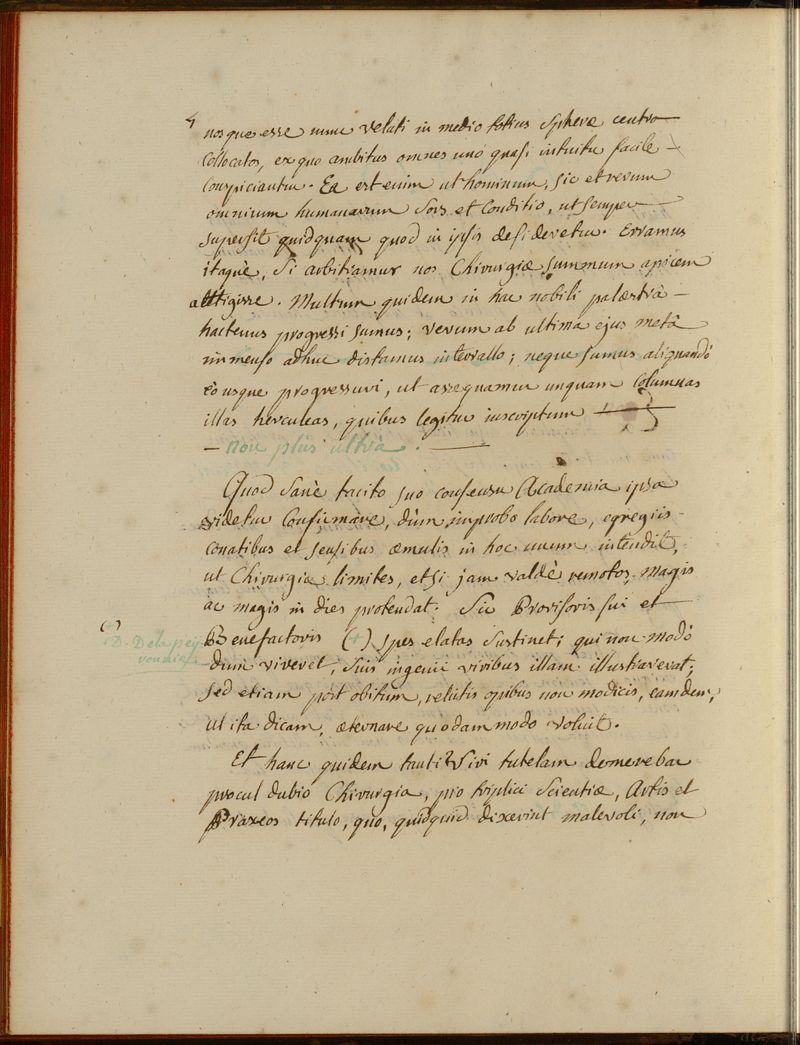 4
nosque esse nunc veluti in medio totius Spheræ centro
Collocatos, ex quo ambitus omnes uno quasi intuitu facile
Conspiciantur. Ea est enim ut hominum, sic et rerum
omnium humanarum Sors et Conditio, ut semper
supersit quidquam quod in ipsis desideretur. Erramus
itaquè, Si arbitramur nos Chirurgiæ summum apicem
attigisse. Multum quidem in hac nobili palæstrâ
hactenus progressi sumus; verum ab ultima ejus metâ
immenso adhuc distamus intervallo; neque sumus aliquandò
eò usque progressuri, ut assequamur unquam Columnas
illas herculeas, quibus legitur inscriptum
non plus ultrà.
Quod Sanè tacito suo consensu Academia ipsa
videtur Confirmare, dùm improbo labore, egregiis
Conatibus et sensibus æmulis in hoc unum intendit,
ut Chirurgiæ limites, etsi jam valdè remotos, magis
ac magis in dies protendat. Sic Provisoris sui et
Benefactoris (+) spes elatas Sustinet; qui non modò
D. De la peÿ
ronnie
dum viveret, Suis ingenii viribus illam illustraverat;
Sed etiam post obitum, relictis opibus non modicis, eamdem,
ut ita dicam, æternare quodammodo voluit.
Et hanc quidem tanti Viri tutelam demerebat
procul dubio Chirurgia, pro triplici Scientiæ, Artis et
Praxeos titulo, quo, quidquid dixerint malevoli, non